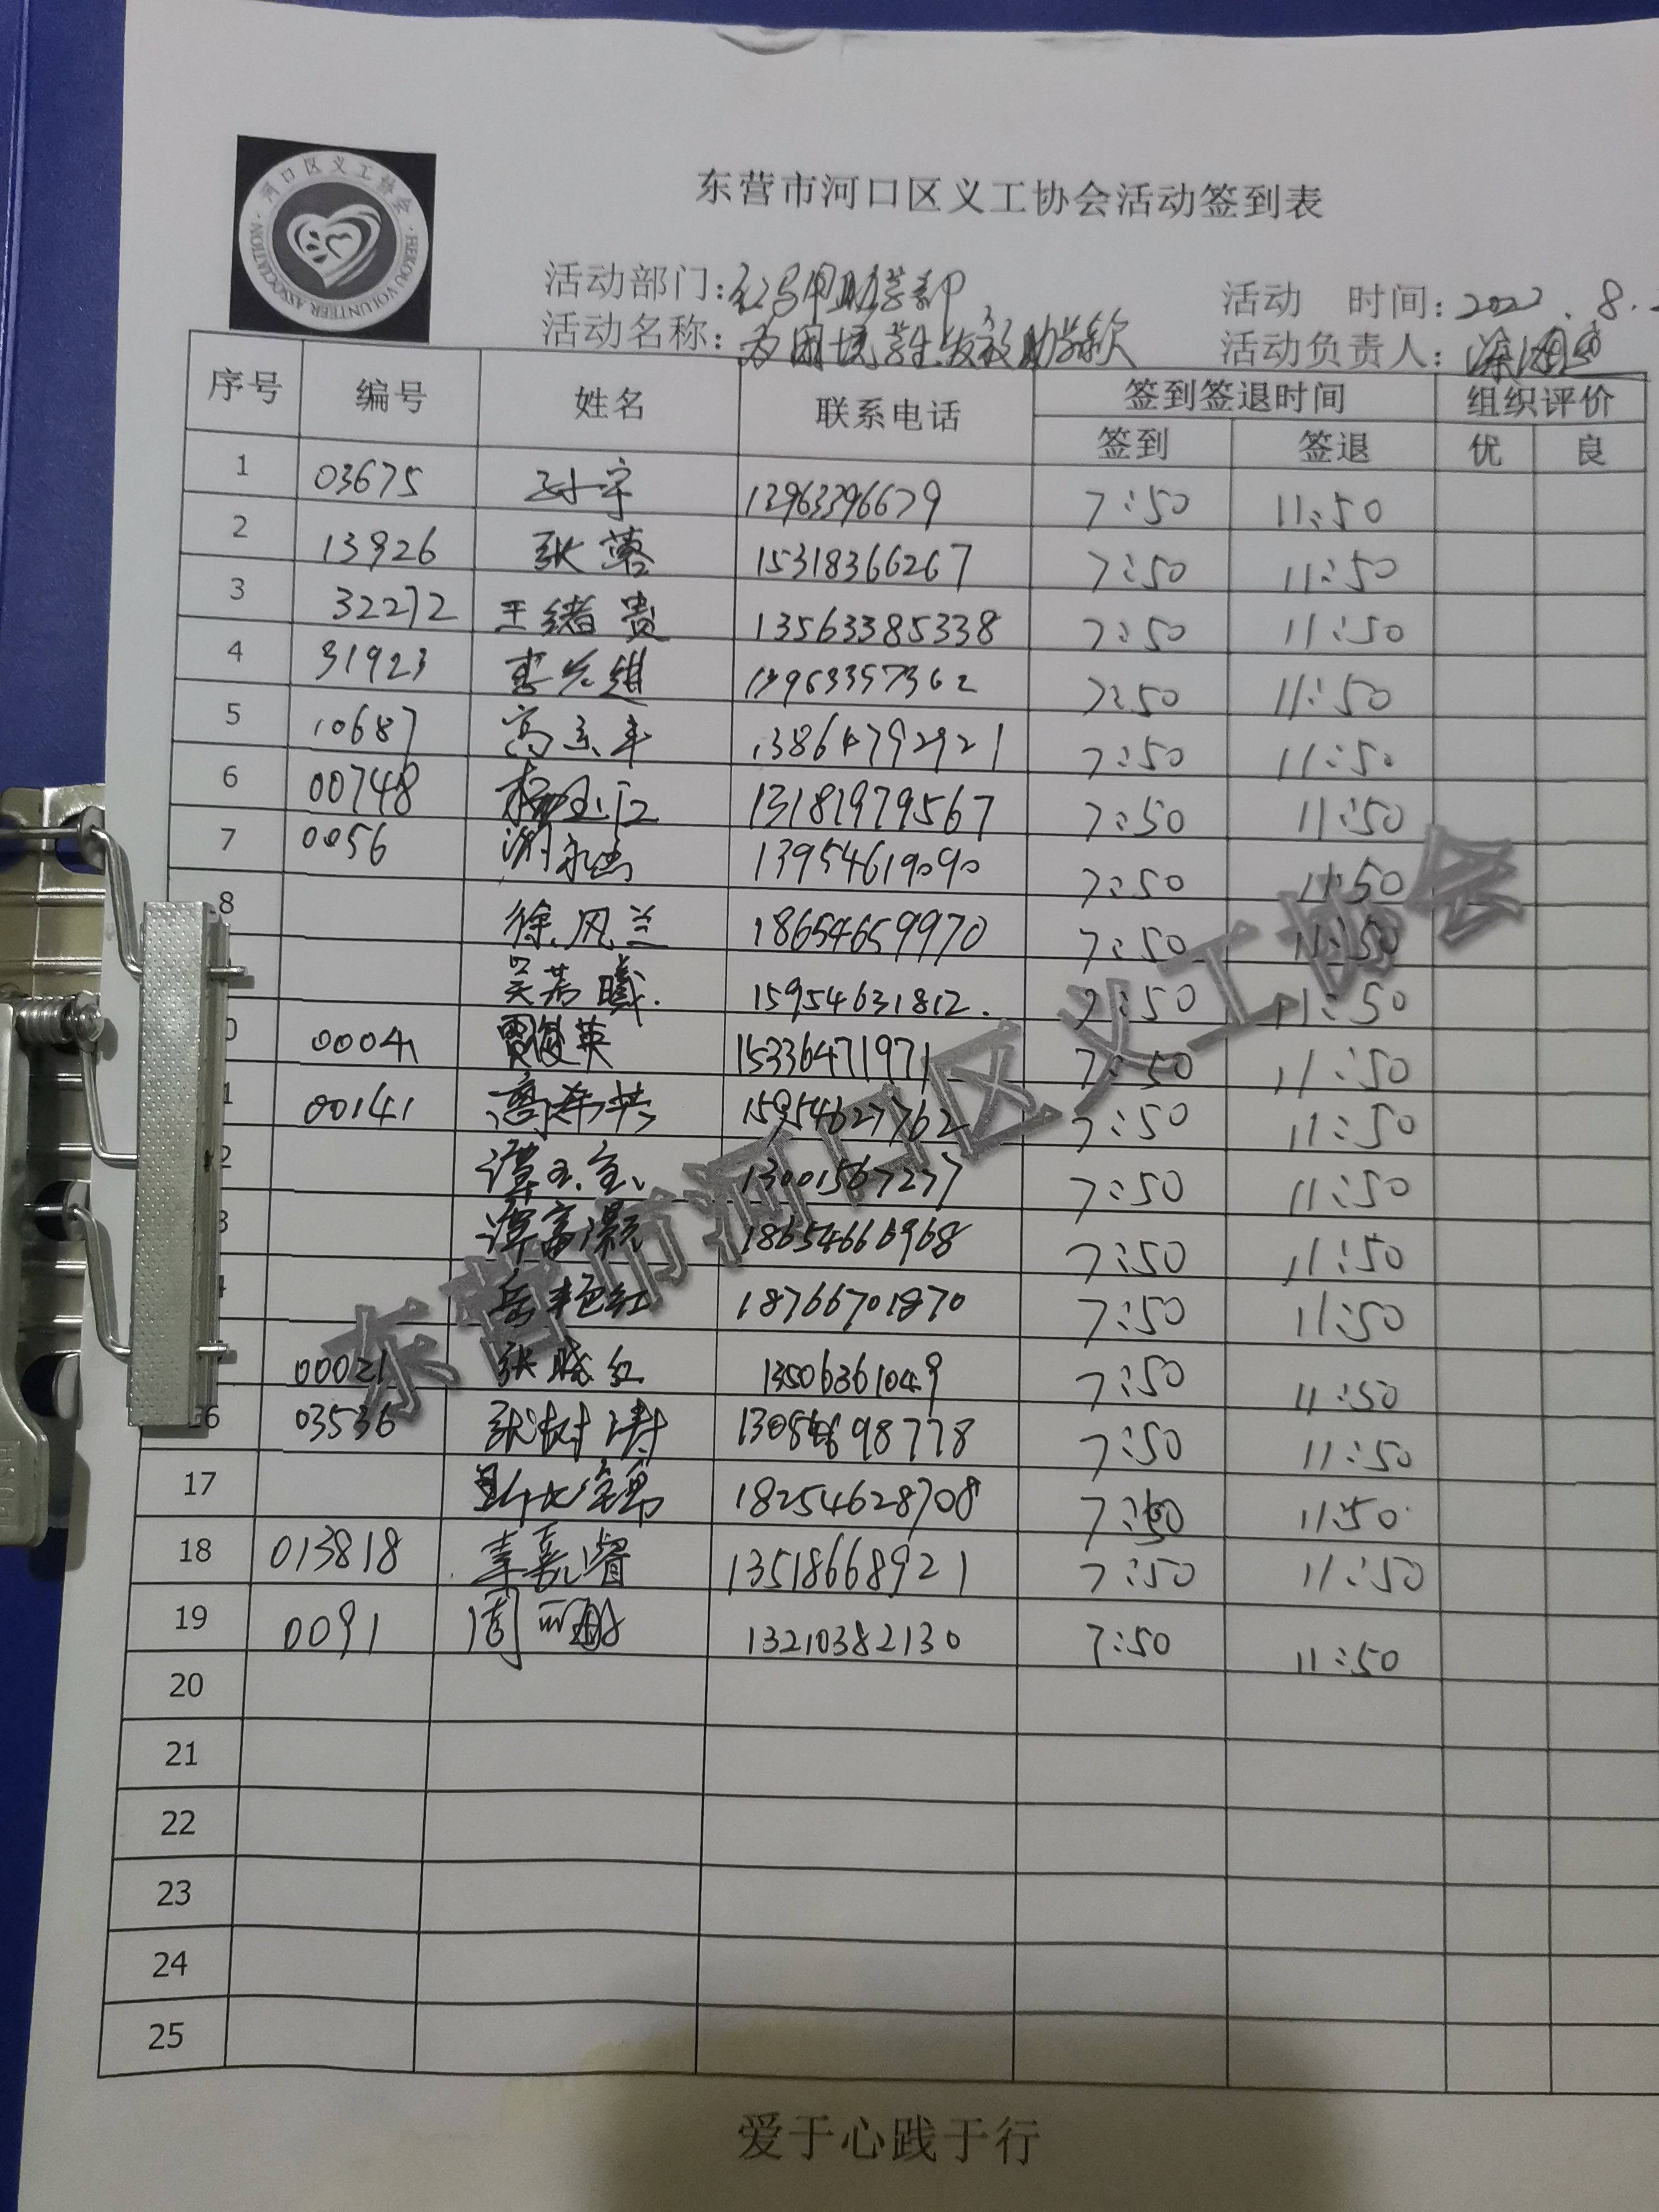 河口区义工协会
HEKOU VOLUNTEER ASSOCIATION
东营市河口区义工协会活动签到表
活动部门：红马甲助学部 活动 时间：2022.8.
活动名称：为困境学生发放助学款 活动负责人：
序号 编号 姓名 联系电话 签到签退时间 组织评价
签到 签退 优 良
1 03675 孙宇 13963396679 7:50 11:50
2 13926 张蓉 15318366267 7:50 11:50
3 32272 王绪贵 13563385338 7:50 11:50
4 31923 李光继 7:50 11:50
5 10687 高京平 13864792921 7:50 11:50
6 00748 杨玉江 13181979567 7:50 11:50
7 0056 谢永杰 13954619090 7:50 11:50
8 徐凤兰 18654659970 7:50 11:50
吴若曦. 15954631812. 7:50 11:50
0 00041 贾俊英 15336471971 7:50 11:50
1 00141 高寿英 15954627762 7:50 11:50
2 谭玉宝 13001567277 7:50 11:50
3 谭富灏 18654666968 7:50 11:50
岳艳红 18766701870 7:50 11:50
00021 张晓红 13506361049 7:50 11:50
6 03536 张树涛 7:50 11:50
17 18254628708 7:50 11:50
18 013818 李嘉睿 13518668921 7:50 11:50
19 0091 周丽 13210382130 7:50 11:50
20
21
22
23
24
25
东营市河口区义工协会
爱于心践于行